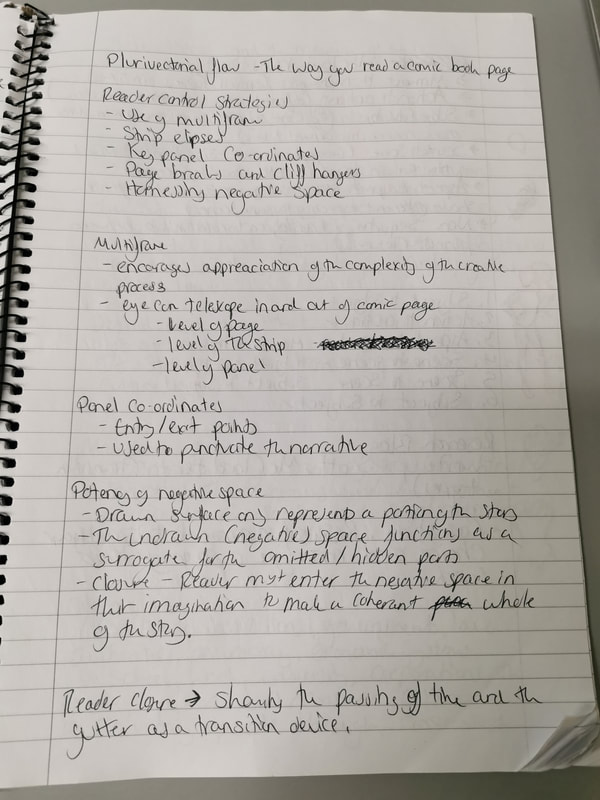 Plurivectorial flow - The way you read a comic book page
Reader control strategies
- Use of multiframe
- Strip elipses
- Key panel Co-ordinates
- Page breaks and cliff hangers
- Harnessing negative Space
Multiframe
- encorages appreaciation of the complexity of the creative
process
- eye can telescope in and out of comic page
- Level of page
- level of The strip
- level of panel
Panel Co-ordinates
- Entry/exit points
- Used to punctuate the narrative
Potency of negative space
- Drawn Surface only represents a portion of the story
- The undrawn (negative) space functions as a
surrogate for the omitted/hidden parts
- Closure - Reader must enter the negative space in
their imagination to make a coherant whole
of the story.
Reader closure → Showing the passing of time and the
gutter as a transition device.